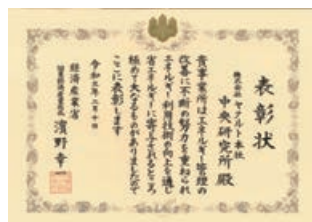 表彰状
株式会社 ヤクルト本社
中央研究所 殿
貴事業所はエネルギー管理の
改善に不断の努力を重ねられ
エネルギー利用技術の向上を通し
省エネルギーに寄与されるところ
極めて大なるものがありましたので
ここに表彰します
令和元年二月十日
経済産業省
濱野幸一